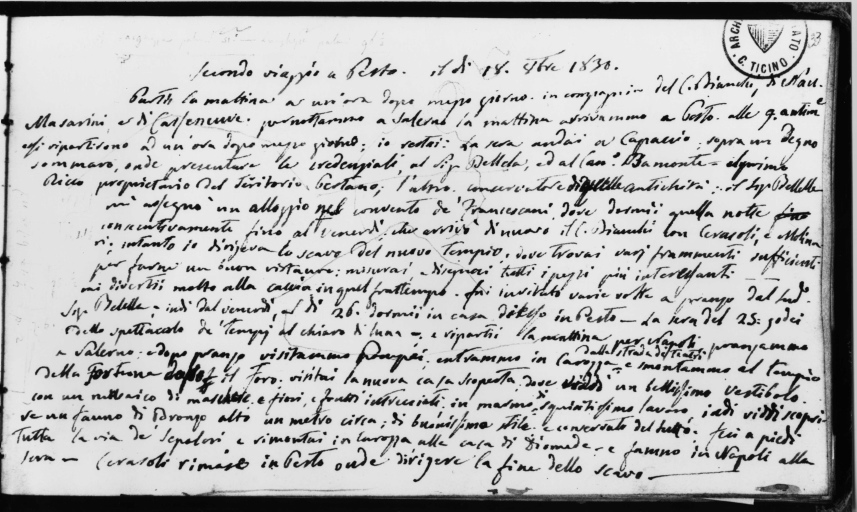 Secondo viaggio a Pesto. il dì 18. 8bre 1830.
ARCH ATO
C. TICINO
33
Partii la mattina a un'ora dopo mezzo giorno in compagnia del C. Bianchi, di
Masarini, e di Casseneuve. pernottammo a Salerno la mattina arrivammo a Pesto. alle 9. antime
essi ripartirono ad un'ora dopo mezzo giorno; io restai: la sera andai a Capaccio, sopra un degno
sommaro, onde presentare le credenziali, al Sigr Bellelle, ed al Can.o Bamonte - il primo
Ricco proprietario del Territorio Pestano; l'altro conservatore di quelle antichità: il Sigr Bellelle
mi assegnò un alloggio nel convento de' Francescani, dove dormii quella notte
consecutivamente fino al venerdì, che arrivò di nuovo il C. Bianchi con Cerasoli, e Molina
ri; intanto io dirigeva lo scavo del nuovo tempio, dove trovai varj frammenti sufficienti
per farne un buon ristauro: misurai, e disegnai tutti i pezzi più interessanti —
mi divertii molto alla caccia in quel frattempo. fui invitato varie volte a pranzo dal sud.
Sigr Belelle; indi dal venerdì, al dì 26. dormii in casa di esso in Pesto — La sera del 25: godei
dello spettacolo de' tempj al chiaro di luna —, e ripartii la mattina per Napoli. pranzammo
a Salerno: e dopo pranzo visitammo Pompei, entrammo in Carozza dalla strada de' Teatri, e smontammo al tempio
della Fortuna il Foro. visitai la nuova casa scoperta, dove viddi un bellissimo vestibolo.
con un mosaico di maschere e fiori, e frutti intrecciati, in marmo, di squisitissimo lavoro, indi viddi scopri-
re un fauno di Bronzo alto un metro circa; di buonissimo stile e conservato del tutto. feci a piedi
tutta la via de' Sepolcri e rimontai in carozza alla casa di Diomede, e fummo in Napoli alla
sera — Cerasoli rimase in Pesto onde dirigere la fine dello scavo —